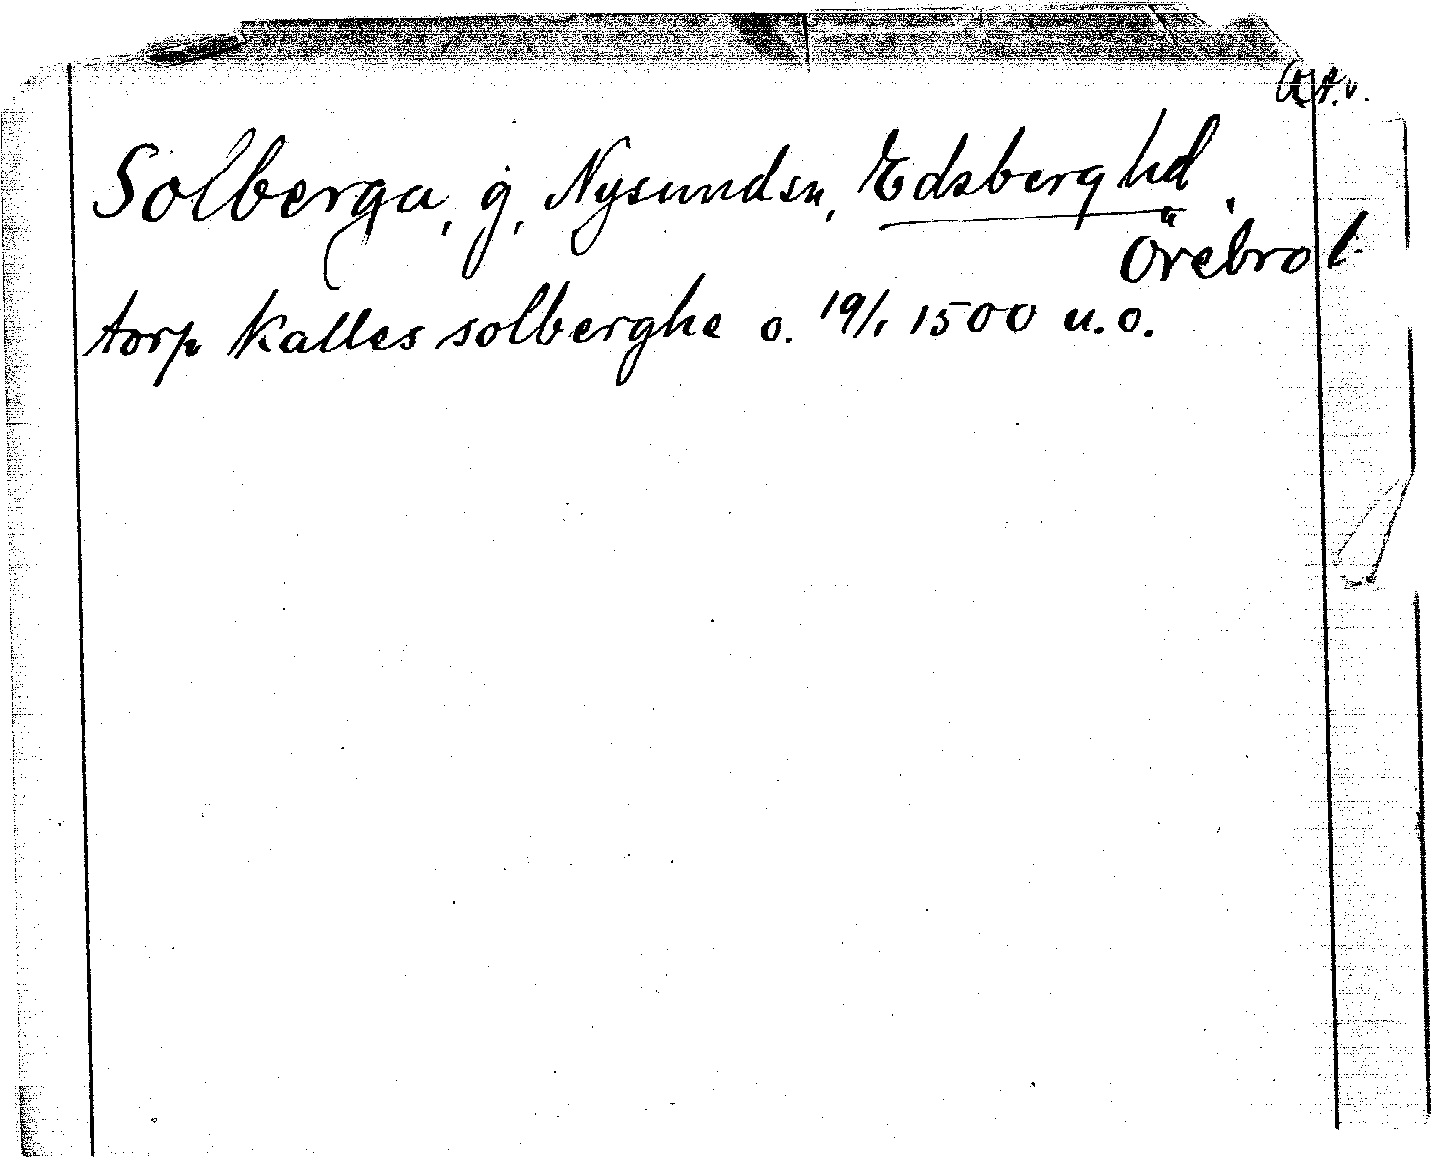 Solberga, g, Nysundsn, Edsberg hd,
Örebro l.
torp kalles solberghe o. 19/1 1500 u.o.